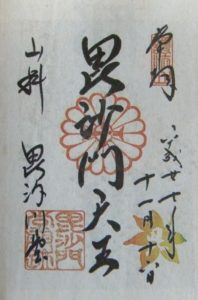 奉拝
平成廿七年
十一月十六日
毘沙門天王
山科
毘沙門堂